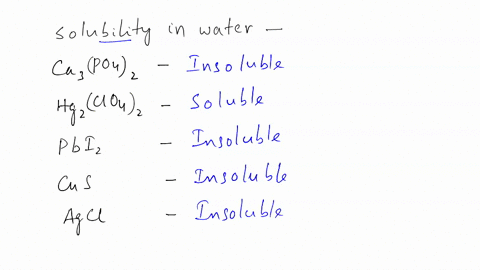 solubility in water —
Ca₃(PO₄)₂ - Insoluble
Hg₂(ClO₄)₂ - Soluble
PbI₂ - Insoluble
CuS - Insoluble
AgCl - Insoluble